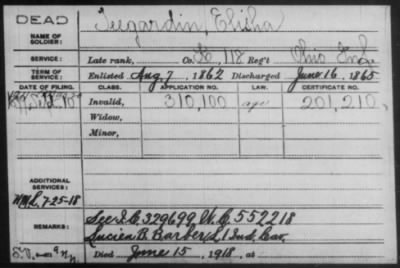 DEAD
NAME OF SOLDIER: Teegardin, Elisha
SERVICE: Late rank, Co. K, 118 Reg't Ohio Inf.
TERM OF SERVICE: Enlisted Aug. 7, 1862 Discharged June 16, 1865
DATE OF FILING. CLASS. APPLICATION NO. LAW. CERTIFICATE NO.
Invalid, 310,100 age 201,210
Widow,
Minor,
ADDITIONAL SERVICES:
7-25-18
REMARKS: See 329699 552218
Lucien B. Barber, 1 Ind. Cav.
Died June 15, 1918, at